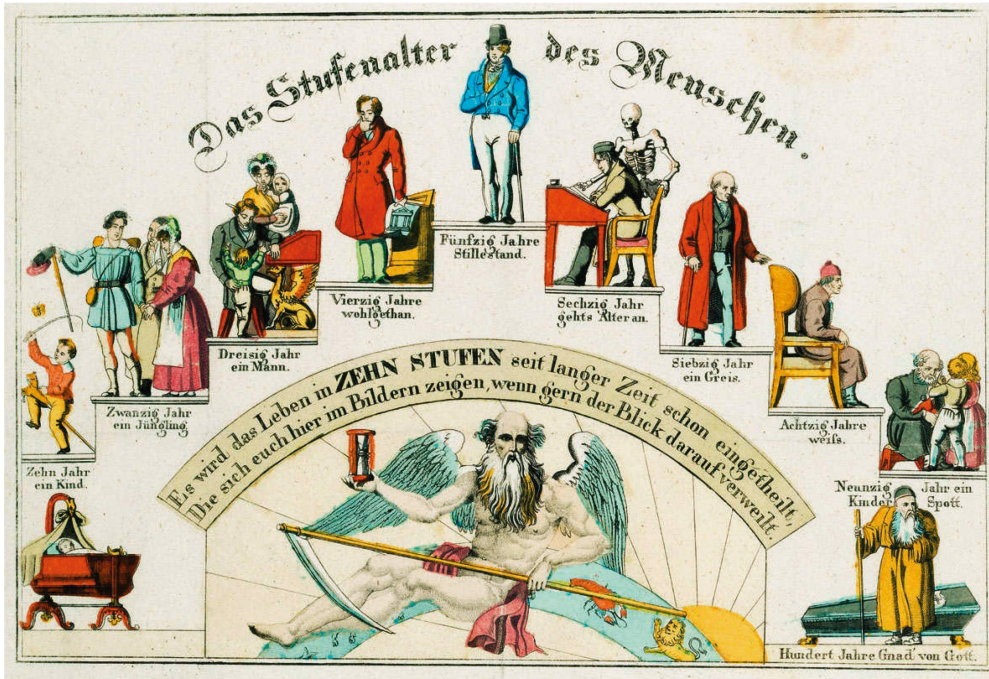 Das Stufenalter des Menschen.
Zehn Jahr
ein Kind.
Zwanzig Jahr
ein Jüngling.
Dreisig Jahr
ein Mann.
Vierzig Jahre
wohlgethan.
Fünfzig Jahre
Stillestand.
Sechzig Jahr
gehts Alter an.
Siebzig Jahr
ein Greis.
Achtzig Jahre
weiss.
Neunzig Jahr ein
Kinder Spott.
Hundert Jahre Gnad' von Gott.
Es wird das Leben in ZEHN STUFEN seit langer Zeit schon eingetheilt,
Die sich euch hier im Bildern zeigen, wenn gern der Blick darauf verweilt.